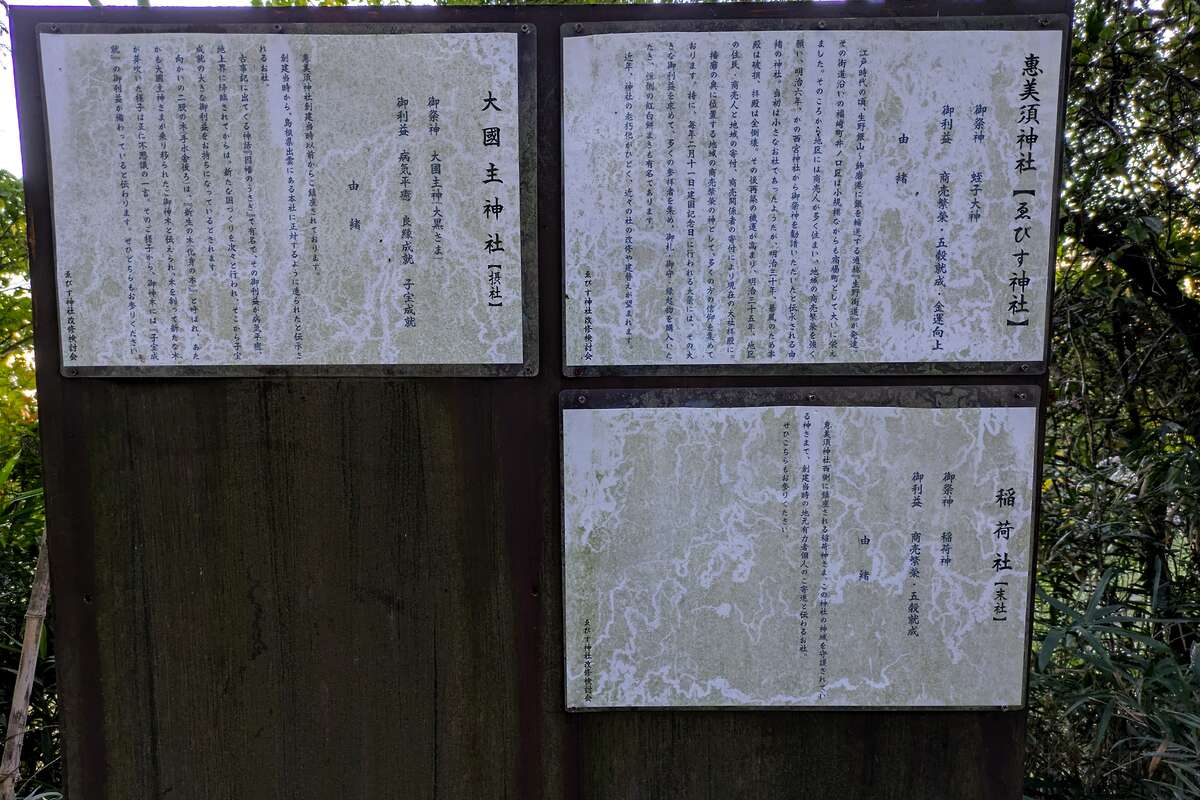 惠美須神社【ゑびす神社】
御祭神 蛭子大神
御利益 商売繁榮・五穀就成・金運向上
由緒
江戸時代の頃、生野銀山～飾磨港に銀を輸送する道『生野街道』が発達、
その街道沿いの福崎町井ノ口区は小規模ながらも宿場町として大いに栄え
ました。そのころから地区には商売人が多く住まい、地域の商売繁榮を強く
願い、明治六年、かの西宮神社から御祭神を勧請いただいたと伝承される由
緒の神社。当初は小さなお社であったようだが、明治三十年、暴風のため本
殿は破損、拝殿は全倒壊。その後再築の機運が高まり、明治三十五年、地区
の住民・商売人と地域の寄付、商売関係者の寄付により現在の大社拝殿に。
播磨の奥に位置する地域の商売繁榮の神として、多くの方の信仰を集めて
おります。特に、毎年二月十一日建国記念日に行われる大祭には、その大
きな御利益を求めて、多くの参拝者を集め、御札・御守・縁起物を購入いた
だき、恒例の紅白餅まきも有名であります。
近年、神社の老朽化がひどく、近々の社の改修や建替えが望まれます。
ゑびす神社改修検討会
大國主神社【摂社】
御祭神 大國主神「大黒さま」
御利益 病気平癒 良縁成就 子宝成就
由緒
惠美須神社創建当時以前からご鎮座されております。
創建当時から、島根県出雲にある本社に正対するように造られたと伝承さ
れるお社。
古事記に出てくる神話『因幡のうさぎ』で有名で、その御利益が病気平癒、
地上界に降臨されてからは、新たな国づくりを次々と行われ、そこから子宝
成就の大きな御利益をお持ちになっているとされます。
向かいの二股の木（手水舎後ろ）は、『新生の木（化身の木）』と呼ばれ、あた
かも大國主神さまが乗り移られたご御神木と伝えられ、木を割って新たな木
が芽吹いた様子は正に不思議の一言。そのご様子から、御神木には『子宝成
就』の御利益が備わっていると伝わります。ぜひどちらもお参りください。
ゑびす神社改修検討会
稲荷社【末社】
御祭神 稲荷神
御利益 商売繁榮・五穀就成
由緒
惠美須神社西側に鎮座される稲荷神さま。この神社の神域を守護されてい
る神さまで、創建当時の地元有力者個人のご寄進と伝わるお社。
ぜひこちらもお参りください。
ゑびす神社改修検討会